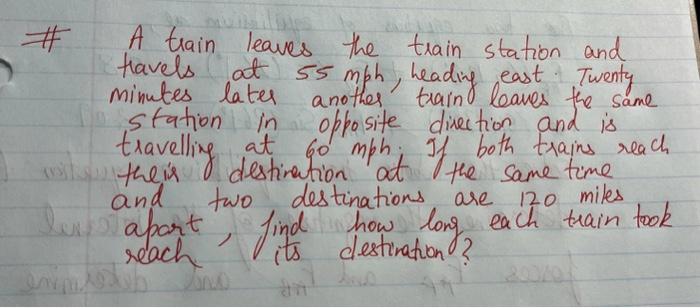 # A train leaves the train station and
travels at 55 mph, heading east. Twenty
minutes later another train leaves the same
station in opposite direction and is
travelling at 60 mph. If both trains reach
their destination at the same time
and two destinations are 120 miles
apart, find how long each train took
reach its destination?